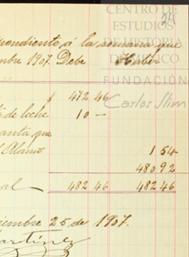 CENTRO DE
ESTUDIOS
DE HISTORIA
DE MÉXICO
FUNDACIÓN
Carlos Slim
24
pondiente á la semana que
mbre 1907. Debe Haber
$ 472 46
de leche 10 —
anta que
Olano 1 54
480 92
al 482 46 482 46
iciembre 25 de 1907.
artinez